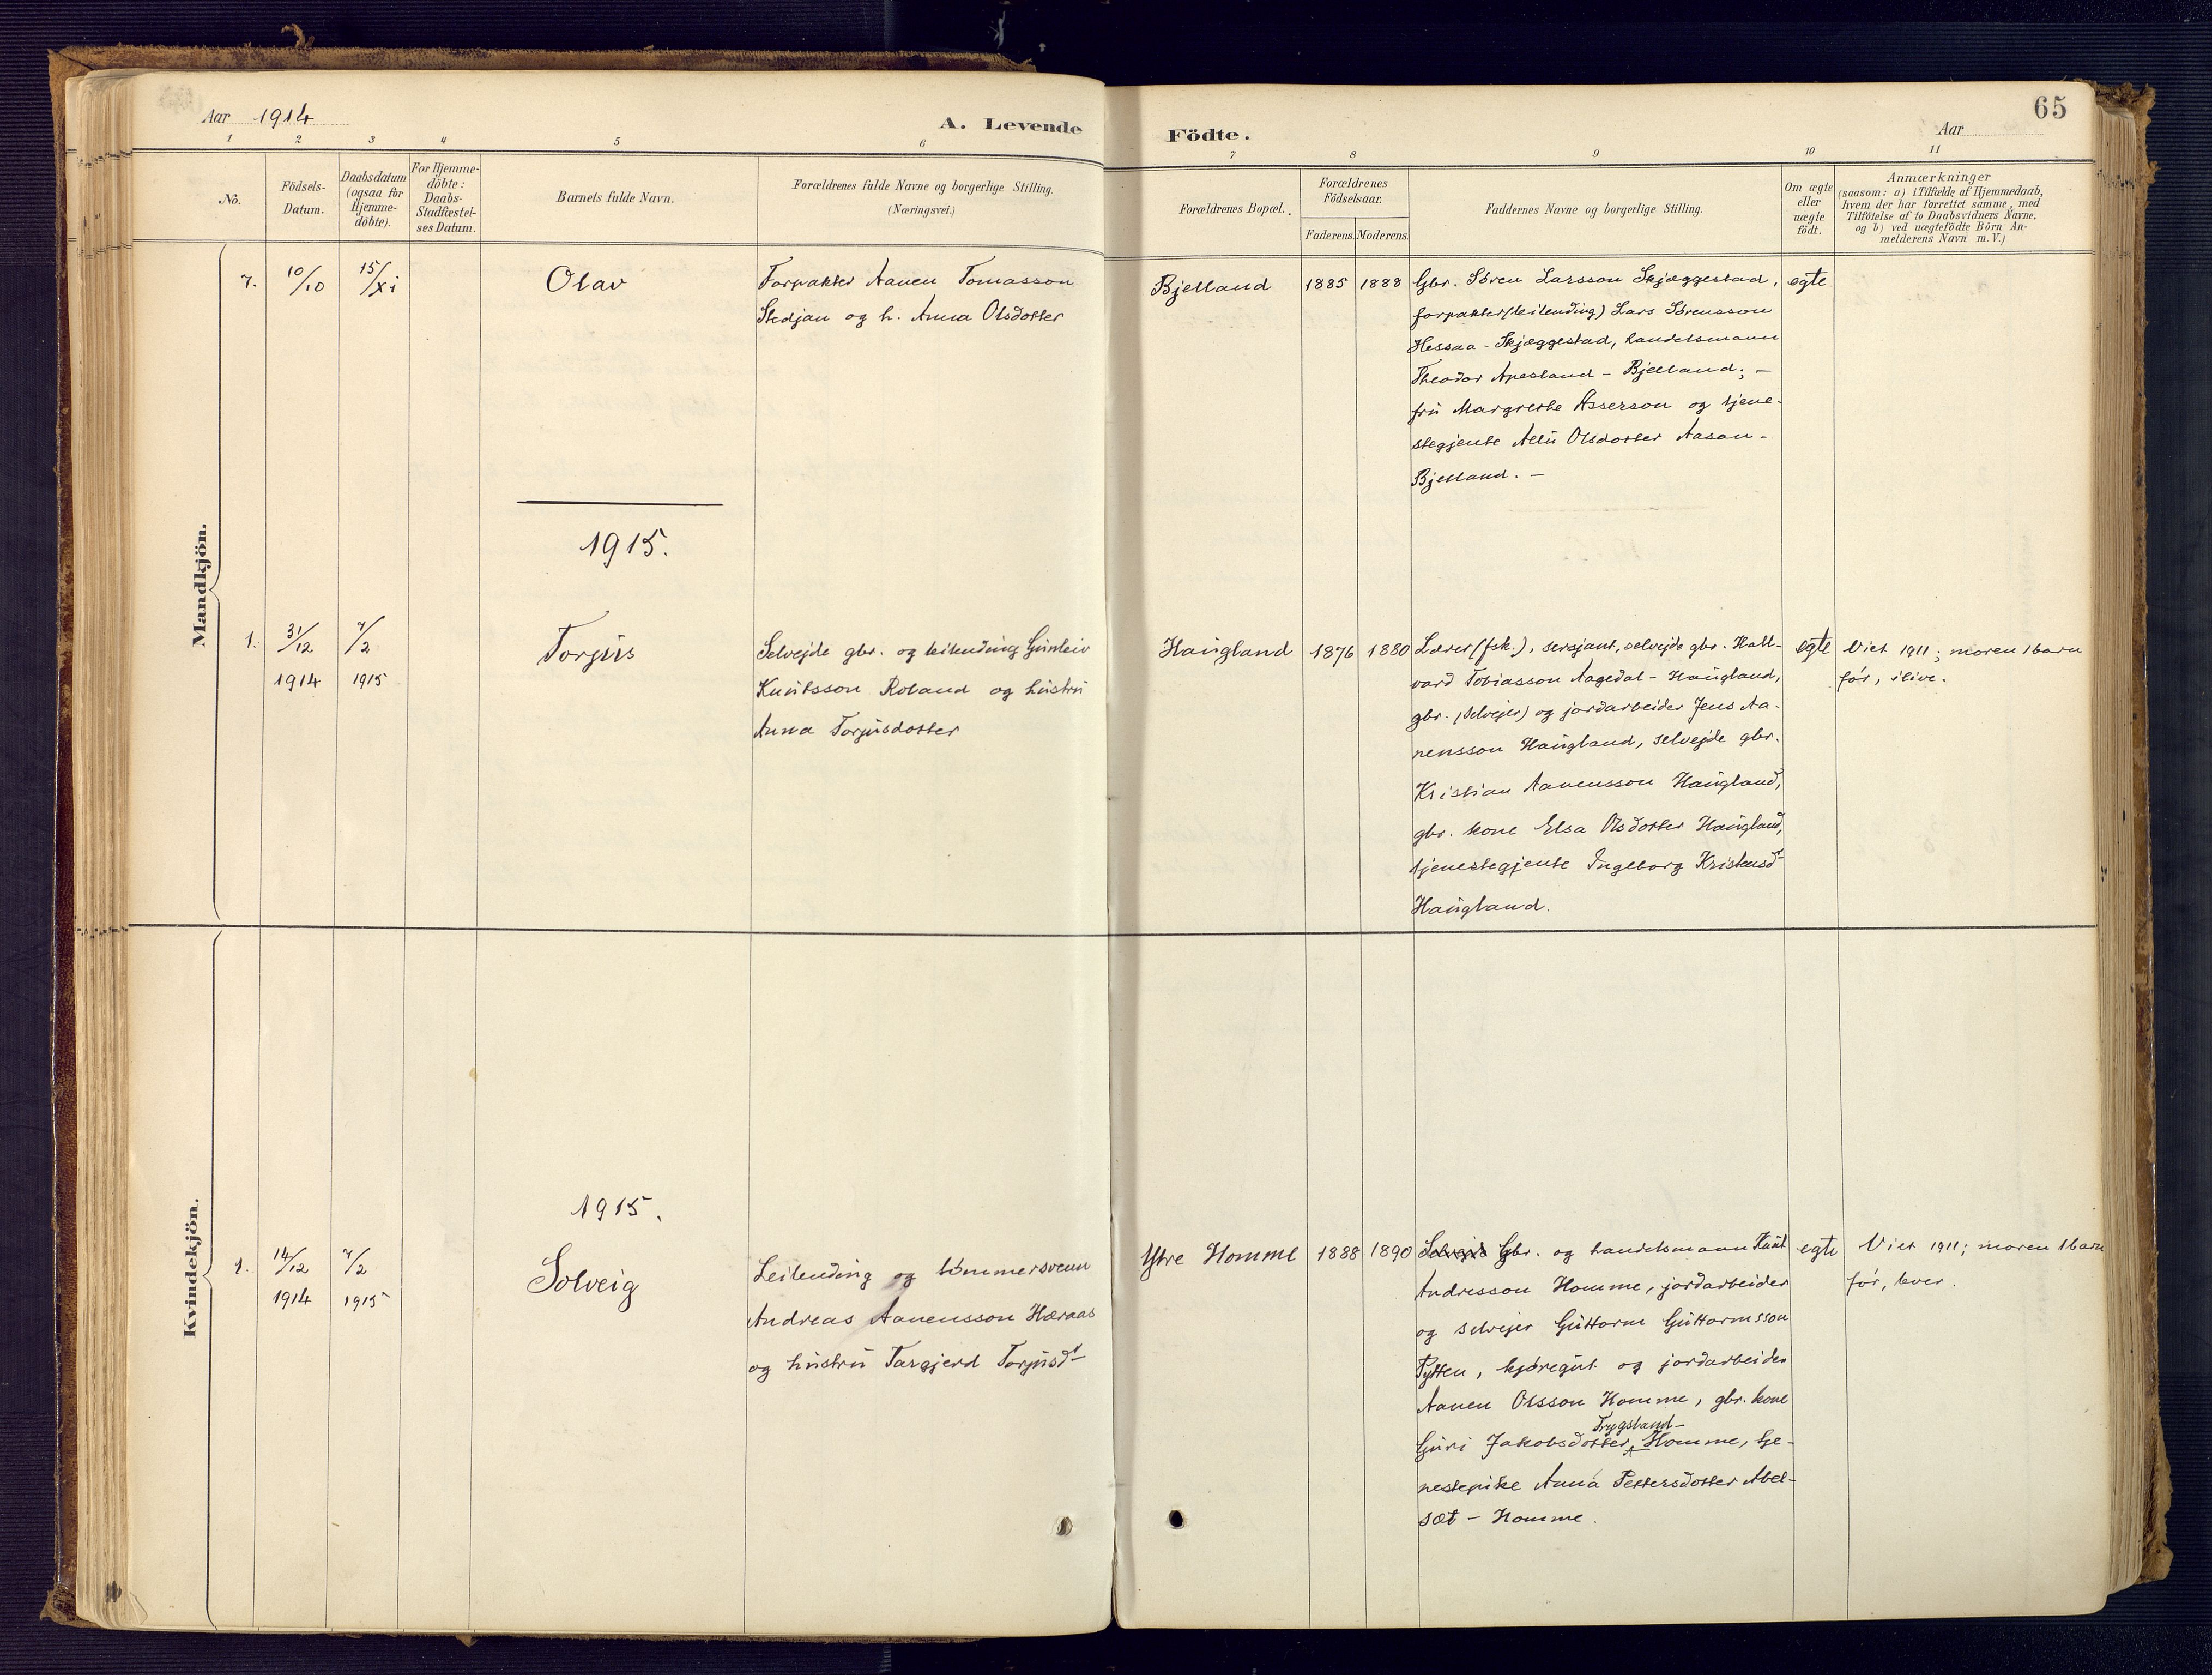 Aar 1914
A. Levende Födte.
Aar
65
1 2 3 4 5 6 7 8 9 10 11
No.
Födsels-
Datum.
Daabsdatum
(ogsaa for
Hjemme-
döbte).
For Hjemme-
döbte:
Daabs-
Stadfæstel-
ses Datum.
Barnets fulde Navn.
Forældrenes fulde Navne og borgerlige Stilling.
(Næringsvei.)
Forældrenes Bopæl.
Forældrenes
Födselsaar.
Faderens. Moderens.
Faddernes Navne og borgerlige Stilling.
Om ægte
eller
uægte
födt.
Anmærkninger
(saasom: a) i Tilfælde af Hjemmedaab,
hvem der har forrettet samme, med
Tilföielse af to Daabsvidners Navne,
og b) ved uægtefödte Börn An-
melderens Navn m. V.)
Mandkjön.
7. 10/10 15/xi
Olav
Forpakter Aanen Tomasson
Stedjan og h. Anna Olsdotter
Bjelland
1885 1888
Gbr. Søren Larsson Skjæggestad,
forpakter (leilending) Lars Sørensson
Hessaa - Skjæggestad, handelsmann
Theodor Apesland - Bjelland; -
frú Margrethe Asserson og tjene-
stegjente Aelú Olsdotter Aasan-
Bjelland. -
egte
1915.
1. 31/12 7/2
1914 1915
Torjús
Selvejde gbr. og leilending Gúnleiv
Knútsson Roland og hústrú
Anna Torjúsdotter
Haúgland
1876 1880
Lærer (fsk.), sersjant, selvejde gbr. Hall-
vard Tobiasson Aagedal - Haúgland,
gbr. (selvejer) og jordarbeider Jens Aa-
nensson Haúgland, selvejde gbr.
Kristian Aanensson Haúgland,
gbr. kone Elsa Olsdotter Haúgland,
tjenestegjente Ingeborg Kristensd-
Haúgland.
egte
Viet 1911; moren 1 barn
før, ilive.
Kvindekjön.
1915.
1. 14/12 7/2
1914 1915
Solveig
Leilending og tømmersvenn
Andreas Aanensson Hæraas
og hústrú Targjerd Torjúsd-
Ytre Homme
1888 1890
Selvejde Gbr. og handelsmann Knút
Andresson Homme, jordarbeider
og selvejer Gúttorm Gúttormsson
Pytten, kjøregút og jordarbeider
Aanen Olsson Homme, gbr. kone
Trygsland-
Gúri Jakobsdotter Homme, tje-
nestepike Anna Pettersdotter Abel-
sæt - Homme.
egte
Viet 1911; moren 1 barn
før, lever.